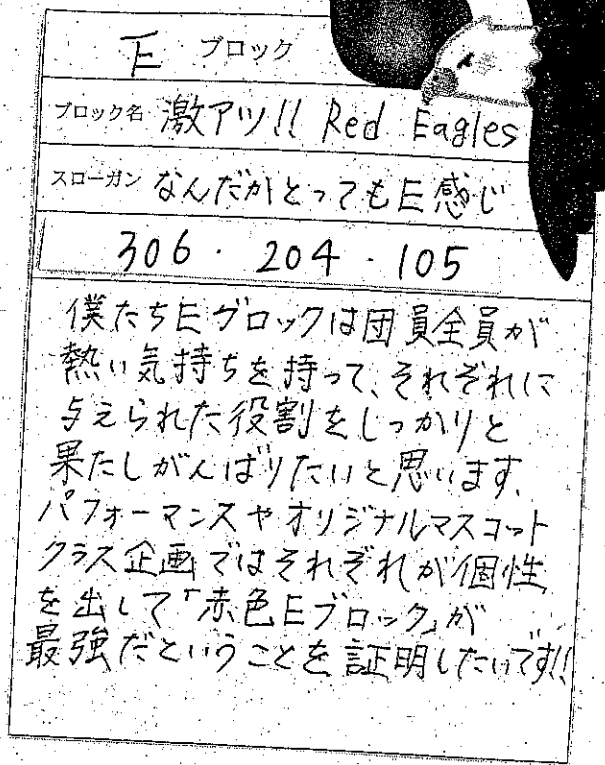 E ブロック
ブロック名 激アツ!! Red Eagles
スローガン なんだかとってもE感じ
306・204・105
僕たちEブロックは団員全員が
熱い気持ちを持って、それぞれに
与えられた役割をしっかりと
果たしがんばりたいと思います。
パフォーマンスやオリジナルマスコット
クラス企画ではそれぞれが個性
を出して「赤色Eブロック」が
最強だということを証明したいです!!